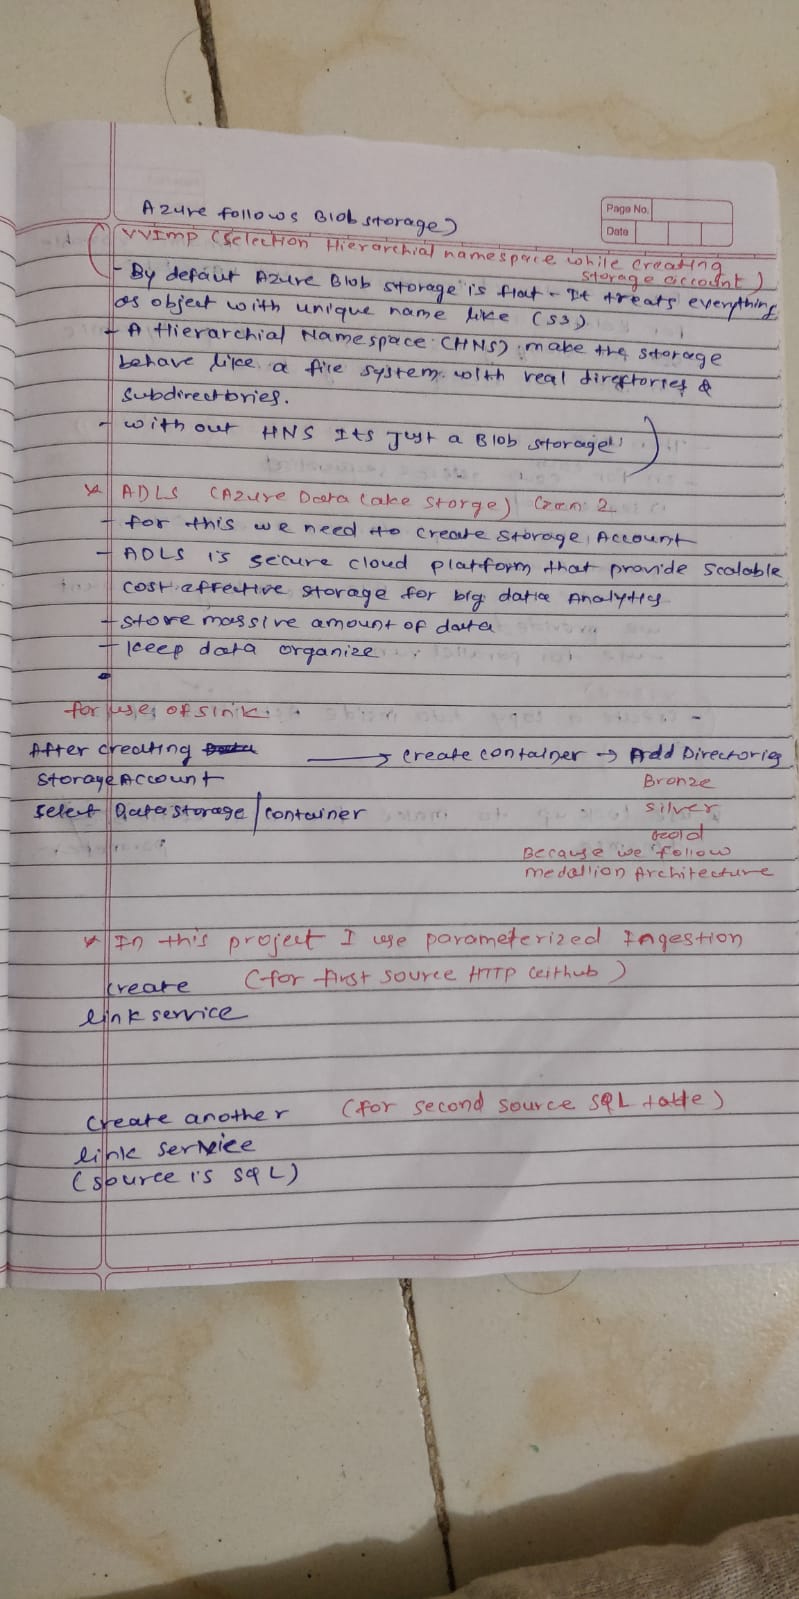 Azure follows Blob storage)
Page No.
Date
VVImp (Selection Hierarchial namespace while creating
storage account)
- By defaut Azure Blob storage is flat - It treats everything
as object with unique name like (S3)
- A Hierarchial Namespace (HNS) make the storage
behave like a file system with real directories &
subdirectories.
- without HNS Its just a Blob storage
* ADLS (Azure Data Lake Storge) Gen 2
- for this we need to create storage Account
- ADLS is secure cloud platform that provide scalable
cost-effective storage for big data Analytics
- store massive amount of data
- keep data organize
for use of sink
After creating Data → create container → Add Directories
Storage Account
Bronze
select Data storage / container
silver
Gold
Because we follow
medallion Architecture
* In this project I use parameterized Ingestion
create (for first source HTTP Github)
link service
create another (for second source SQL table)
link service
(source is SQL)